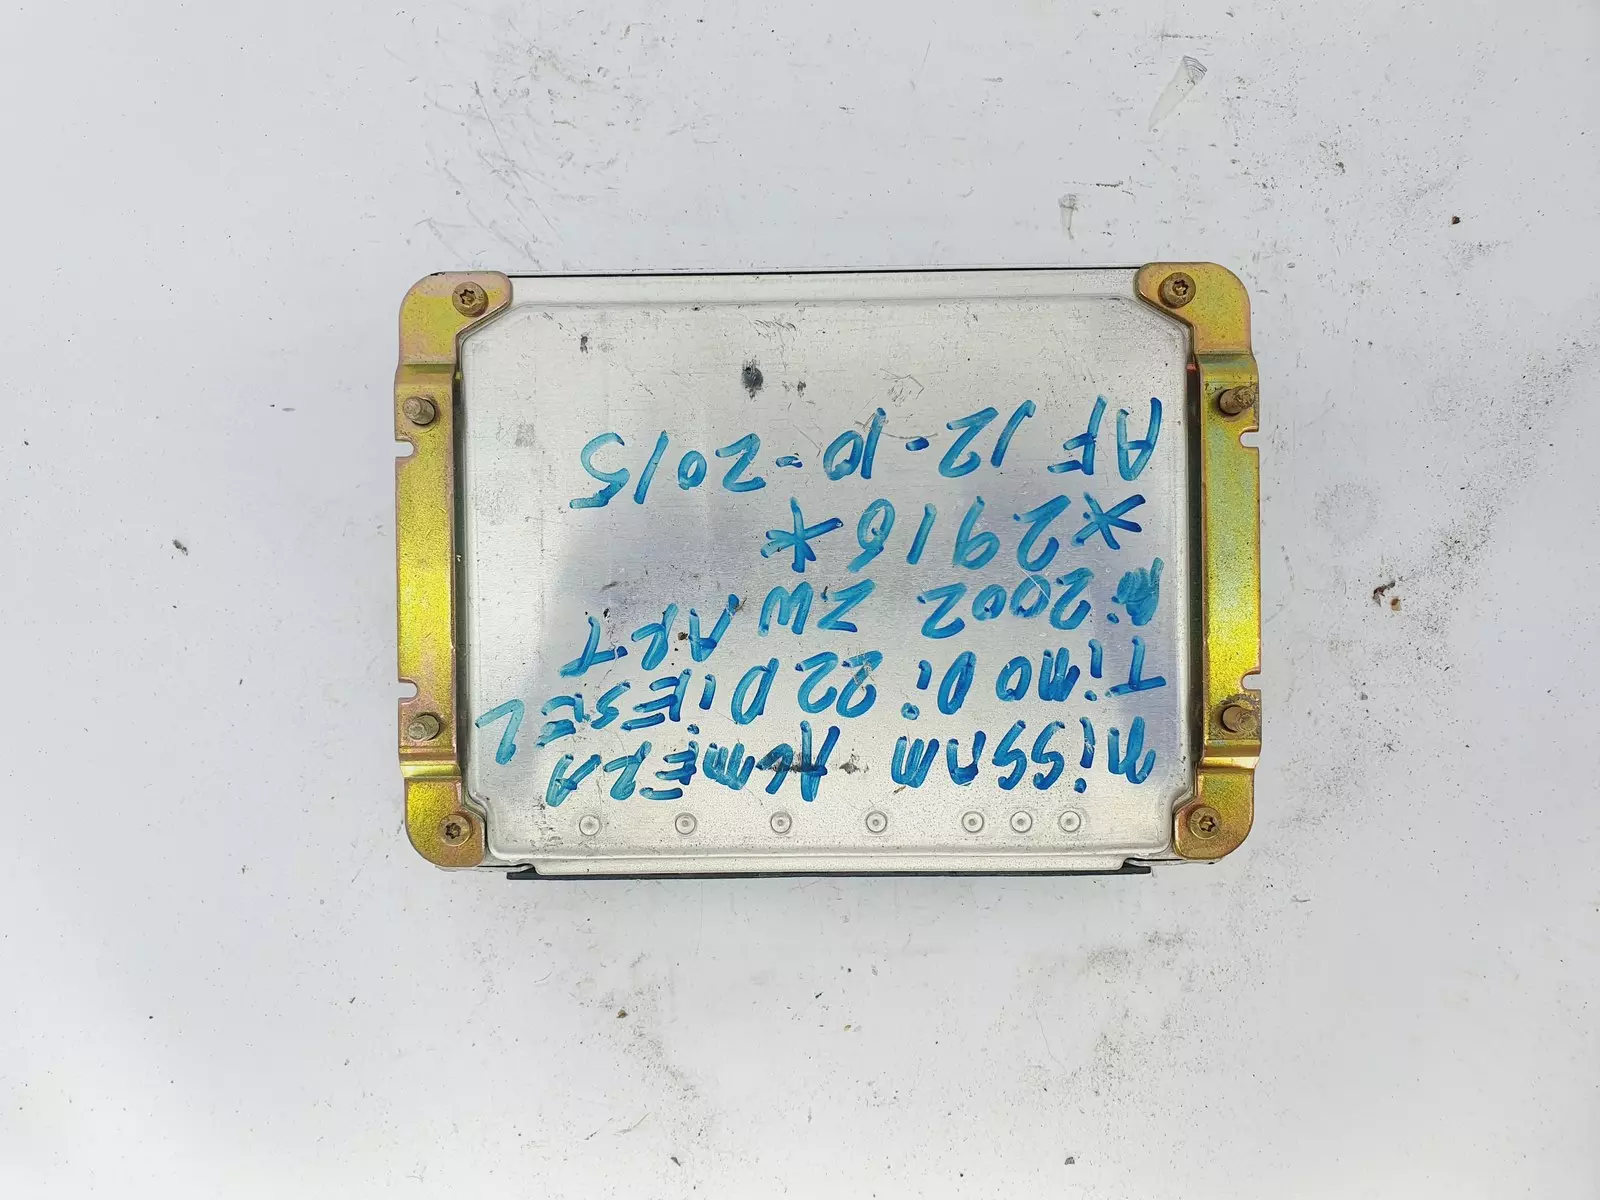 NiSSAN ALMERA
TiNO Di 22 DiESEL
Ni 2002 ZWART
*2916*
AF 12-10-2015